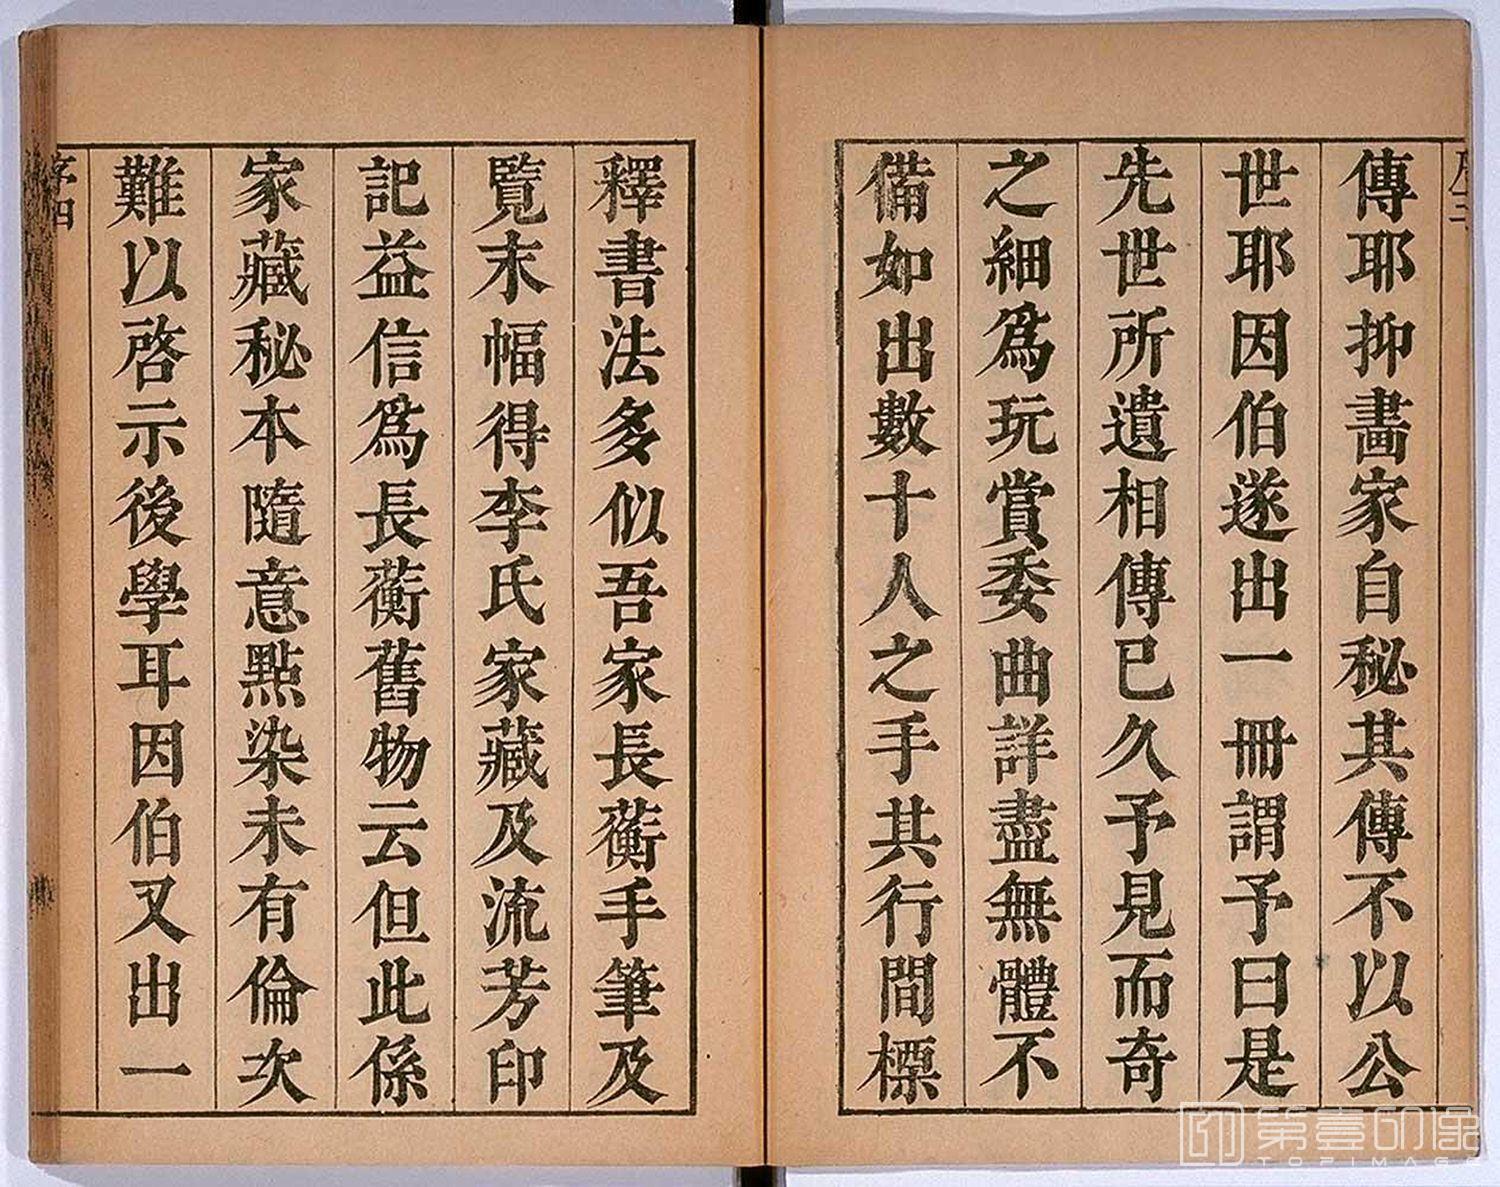 傳耶抑畫家自秘其傳不以公
世耶因伯遂出一冊謂予曰是
先世所遺相傳已久予見而奇
之細爲玩賞委曲詳盡無體不
備如出數十人之手其行間標
釋書法多似吾家長蘅手筆及
覽末幅得李氏家藏及流芳印
記益信爲長蘅舊物云但此係
家藏秘本隨意點染未有倫次
難以啓示後學耳因伯又出一
序四
第壹印像
TOPIMAGE